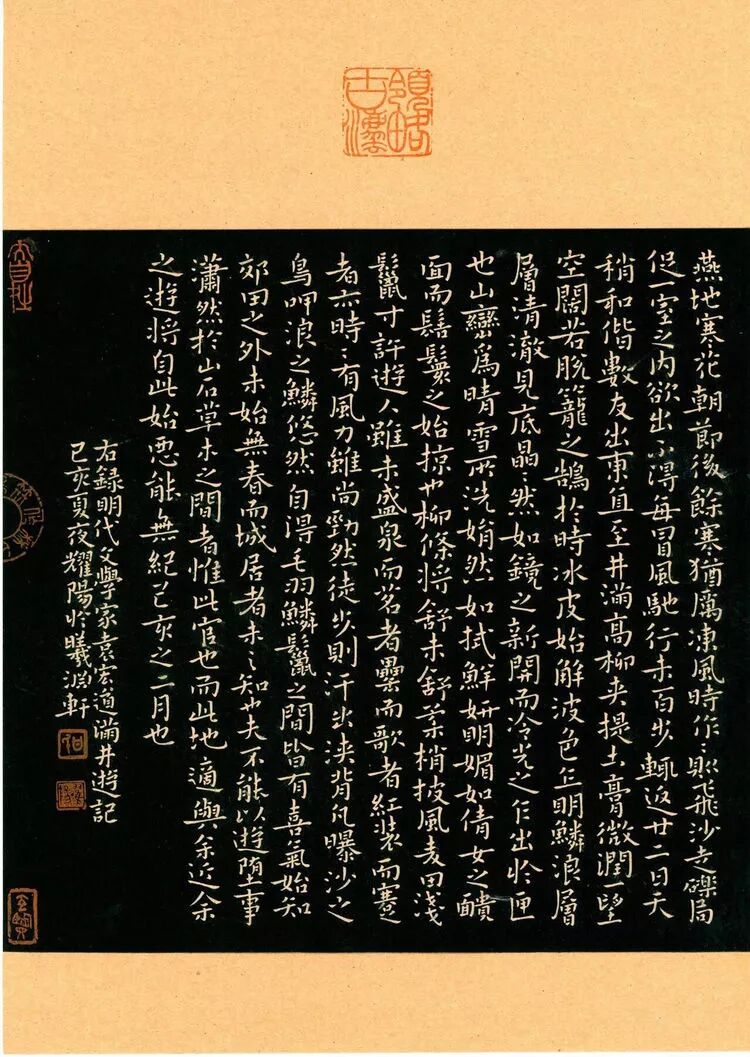 領略古灋
燕地寒花朝節後餘寒猶厲凍風時作〻則飛沙走礫局
促一室之内欲出不得每冒風馳行未百步輒返廿二日天
稍和偕數友出東直至井滿高柳夾堤土膏微潤一望
空闊若脫籠之鵠於時冰皮始解波色乍明鱗浪層
層清澈見底晶〻然如鏡之新開而冷光之乍出於匣
也山巒為晴雪所洗娟然如拭鮮妍明媚如倩女之靧
面而髻鬟之始掠也柳條將舒未舒柔梢披風麦田淺
鬣寸許遊人雖未盛泉而茗者罍而歌者紅裝而蹇
者亦時〻有風力雖尚勁然徒步則汗出浹背凡曝沙之
鳥呷浪之鱗悠然自得毛羽鱗鬣之間皆有喜氣始知
郊田之外未始無春而城居者未之知也夫不能以遊堕事
瀟然於山石草木之間者惟此官也而此地適與余近余
之遊將自此始惡能無紀己亥之二月也
右錄明代文學家袁宏道滿井遊記
己亥夏夜耀陽於曦淵軒